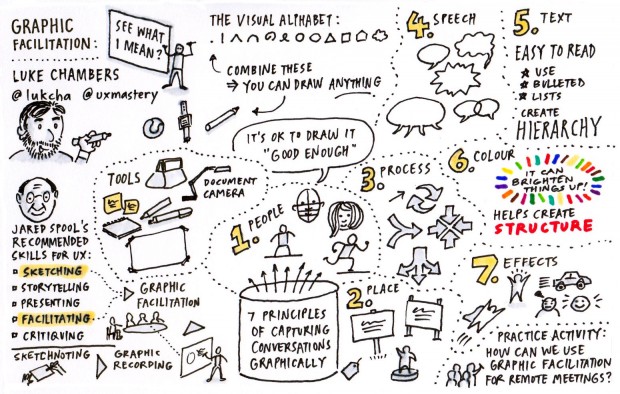 GRAPHIC
FACILITATION:
LUKE CHAMBERS
@lukcha @uxmastery
SEE WHAT
I MEAN?
THE VISUAL ALPHABET:
COMBINE THESE
⇒ YOU CAN DRAW ANYTHING
IT'S OK TO DRAW IT
"GOOD ENOUGH"
TOOLS
DOCUMENT
CAMERA
JARED SPOOL'S
RECOMMENDED
SKILLS FOR UX:
SKETCHING
STORYTELLING
PRESENTING
FACILITATING
CRITIQUING
SKETCHNOTING
GRAPHIC
FACILITATION
GRAPHIC
RECORDING
7 PRINCIPLES
OF CAPTURING
CONVERSATIONS
GRAPHICALLY
1. PEOPLE
2. PLACE
3. PROCESS
4. SPEECH
5. TEXT
EASY TO READ
USE
BULLETED
LISTS
CREATE
HIERARCHY
6. COLOUR
IT CAN
BRIGHTEN
THINGS UP!
HELPS CREATE
STRUCTURE
7. EFFECTS
PRACTICE ACTIVITY:
HOW CAN WE USE
GRAPHIC FACILITATION
FOR REMOTE MEETINGS?